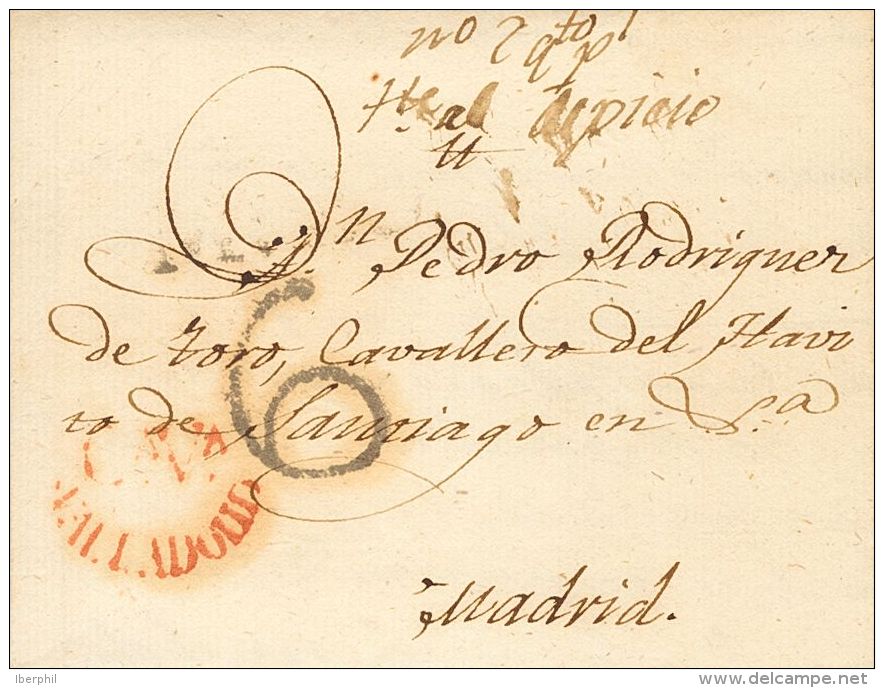 no 2 qto
Hte al Ospicio
A Dn Pedro Rodriguez
de Toro, Cavallero del Havi
to de Santiago en Sa
6
VALLADOLID
Madrid.
Iberphil
www.delcampe.net